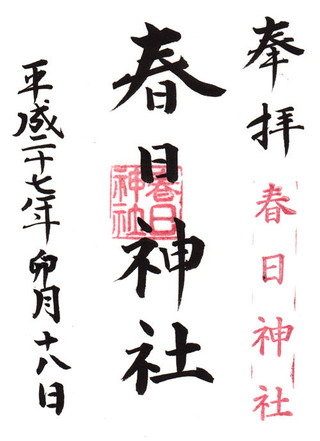 奉拝
春日神社
春日神社
春日神社
平成二十七年卯月十八日